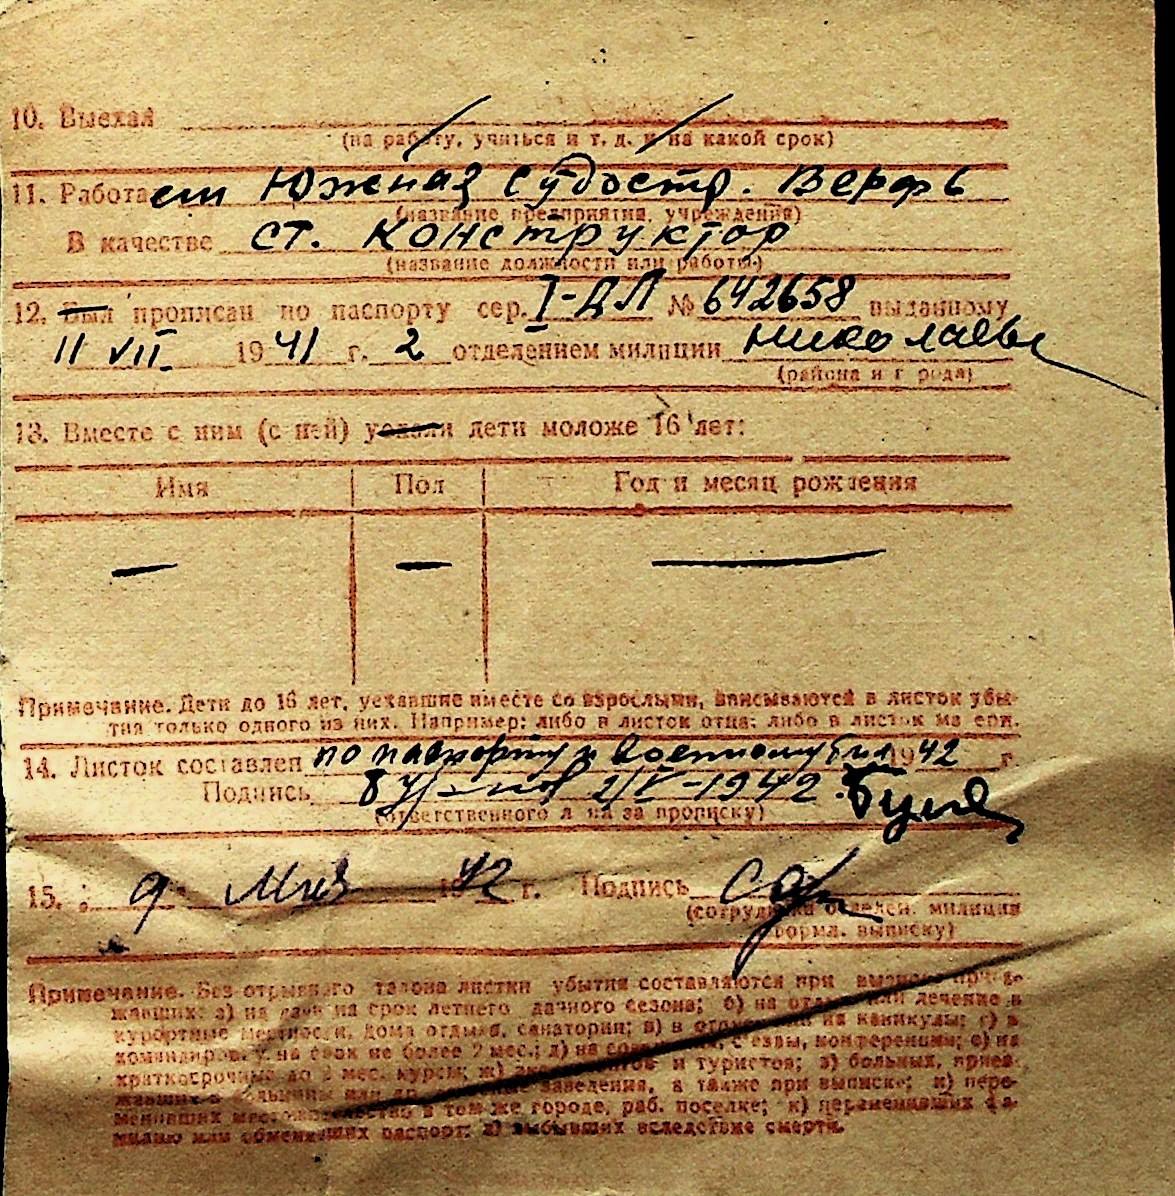 10. Выехал
(на работу, учиться и т. д. и на какой срок)
11. Работает Южная Судостр. Верфь
(название предприятия, учреждения)
В качестве ст. Конструктор
(название должности или работы)
12. Был прописан по паспорту сер. I-ДЛ № 642658 выданному
11 VII 1941 г. 2 отделением милиции Николаевы
(района и города)
13. Вместе с ним (с ней) уехали дети моложе 16 лет:
Имя Пол Год и месяц рождения
— — —
Примечание. Дети до 16 лет, уехавшие вместе со взрослыми, вписываются в листок убы-
тия только одного из них. Например: либо в листок отца; либо в листок матери.
14. Листок составлен по паспорту и военному бил 1942 г.
Подпись 2/V-1942.
(ответственного л на за прописку)
15. 9 Мая 1942 г. Подпись
(сотрудника отделен. милиции
оформл. выписку)
Примечание. Без отрывного талона листки убытия составляются при выписке приез-
жавших: а) на дачи на срок летнего дачного сезона; б) на отдых или лечение в
курортные местности, дома отдыха, санатории; в) в отпуск или на каникулы; г) в
командировку на срок не более 2 мес.; д) на совещания, съезды, конференции; е) на
краткосрочные до 2 мес. курсы; ж) экскурсантов и туристов; з) больных, приез-
жавших в больницы или др. заведения, а также при выписке; и) пере-
менивших местожительство в том же городе, раб. поселке; к) переменивших фа-
милию или обменявших паспорт; л) выбывших вследствие смерти.